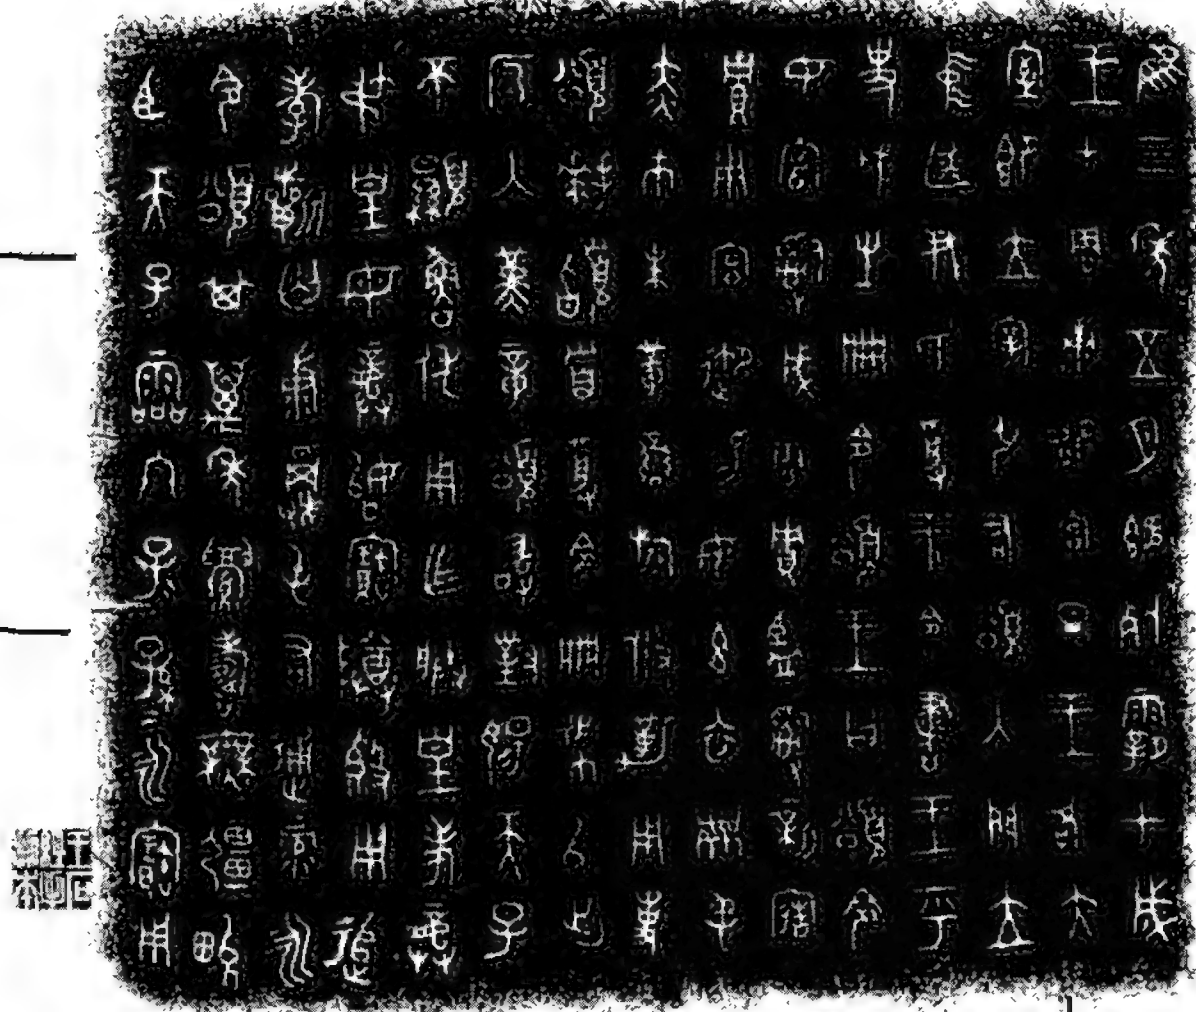 隹三年五月既死霸甲戌
王才周康卲宮旦王各大
室即立宰弘右頌入門立
中廷尹氏受王令書王乎
史虢生冊令頌王曰頌令
女官𤔲成周貯監𤔲新造
貯用宮御易女玄衣黹屯
赤巿朱黃䜌旂攸勒用事
頌拜𩒨首受令冊佩以出
反入堇章頌敢對揚天子
不顯魯休用乍朕皇考龏
弔皇母龏始寶尊𣪘用追
孝𣄨匄康𩁹屯右通彔永
令頌其萬年眉壽無彊畯
臣天子霝冬子=孫=永寶用